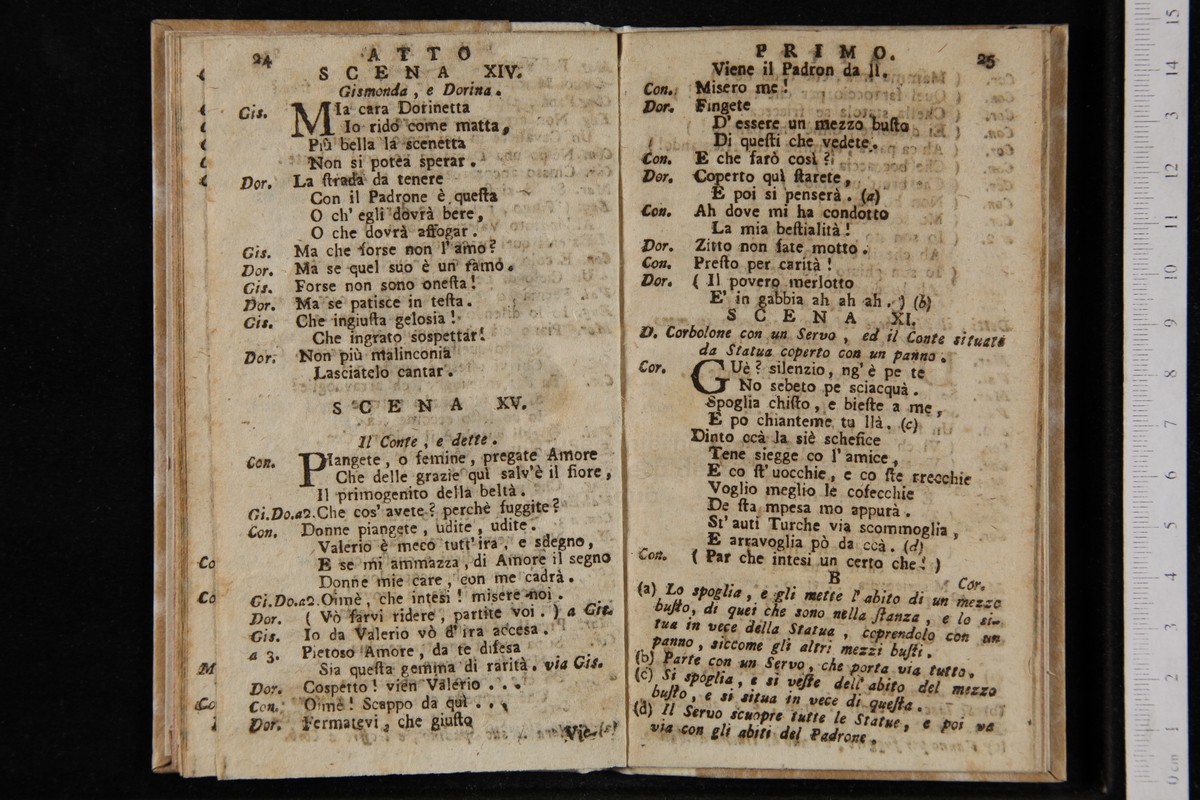 24
ATTO
SCENA XIV.
Gismonda, e Dorina.
Gis. MIa cara Dorinetta
Io rido come matta,
Più bella la scenetta
Non si potea sperar.
Dor. La ſtrada da tenere
Con il Padrone è queſta
O ch' egli dovrà bere,
O che dovrà affogar.
Gis. Ma che forse non l'amo?
Dor. Ma se quel suo è un famo.
Gis. Forse non sono oneſta!
Dor. Ma se patisce in teſta.
Gis. Che ingiuſta gelosia!
Che ingrato sospettar!
Dor. Non più malinconia
Lasciatelo cantar.
SCENA XV.
Il Conte, e dette.
Con. PIangete, o femine, pregate Amore
Che delle grazie quì salv'è il fiore,
Il primogenito della beltà.
Gi.Do.a2. Che cos' avete? perchè fuggite?
Con. Donne piangete, udite, udite.
Valerio è meco tutt'ira, e sdegno,
E se mi ammazza, di Amore il segno
Donne mie care, con me cadrà.
Gi.Do.a2. Oimè, che intesi! misere noi.
Dor. ( Vò farvi ridere, partite voi. ) a Gis.
Gis. Io da Valerio vò d'ira accesa.
a 3. Pietoso Amore, da te difesa
Sia queſta gemma di rarità. via Gis.
Dor. Cospetto! vien Valerio...
Con. Oimè! Scappo da quì...
Dor. Fermatevi, che giuſto
Vie-
PRIMO.
25
Viene il Padron da lì.
Con. Misero me!
Dor. Fingete
D' essere un mezzo buſto
Di queſti che vedete.
Con. E che farò così?
Dor. Coperto quì ſtarete,
E poi si penserà. (a)
Con. Ah dove mi ha condotto
La mia beſtialità!
Dor. Zitto non fate motto.
Con. Preſto per carità!
Dor. ( Il povero merlotto
E' in gabbia ah ah ah. ) (b)
SCENA XI.
D. Corbolone con un Servo, ed il Conte situato
da Statua coperto con un panno.
Cor. GUè? silenzio, ng'è pe te
No sebeto pe sciacquà.
Spoglia chiſto, e bieſte a me,
E po chianteme tu llà. (c)
Dinto ccà la siè schefice
Tene siegge co l'amice,
E co ſt' uocchie, e co ſte rrecchie
Voglio meglio le cosecchie
De ſta mpesa mo appurà.
St' auti Turche via scommoglia,
E arravoglia pò da ccà. (d)
Con. ( Par che intesi un certo che! )
B
Cor.
(a) Lo spoglia, e gli mette l'abito di un mezzo
buſto, di quei che sono nella ſtanza, e lo si-
tua in vece della Statua, coprendolo con un
panno, siccome gli altri mezzi buſti.
(b) Parte con un Servo, che porta via tutto.
(c) Si spoglia, e si veſte dell'abito del mezzo
buſto, e si situa in vece di queſta.
(d) Il Servo scuopre tutte le Statue, e poi va
via con gli abiti del Padrone.